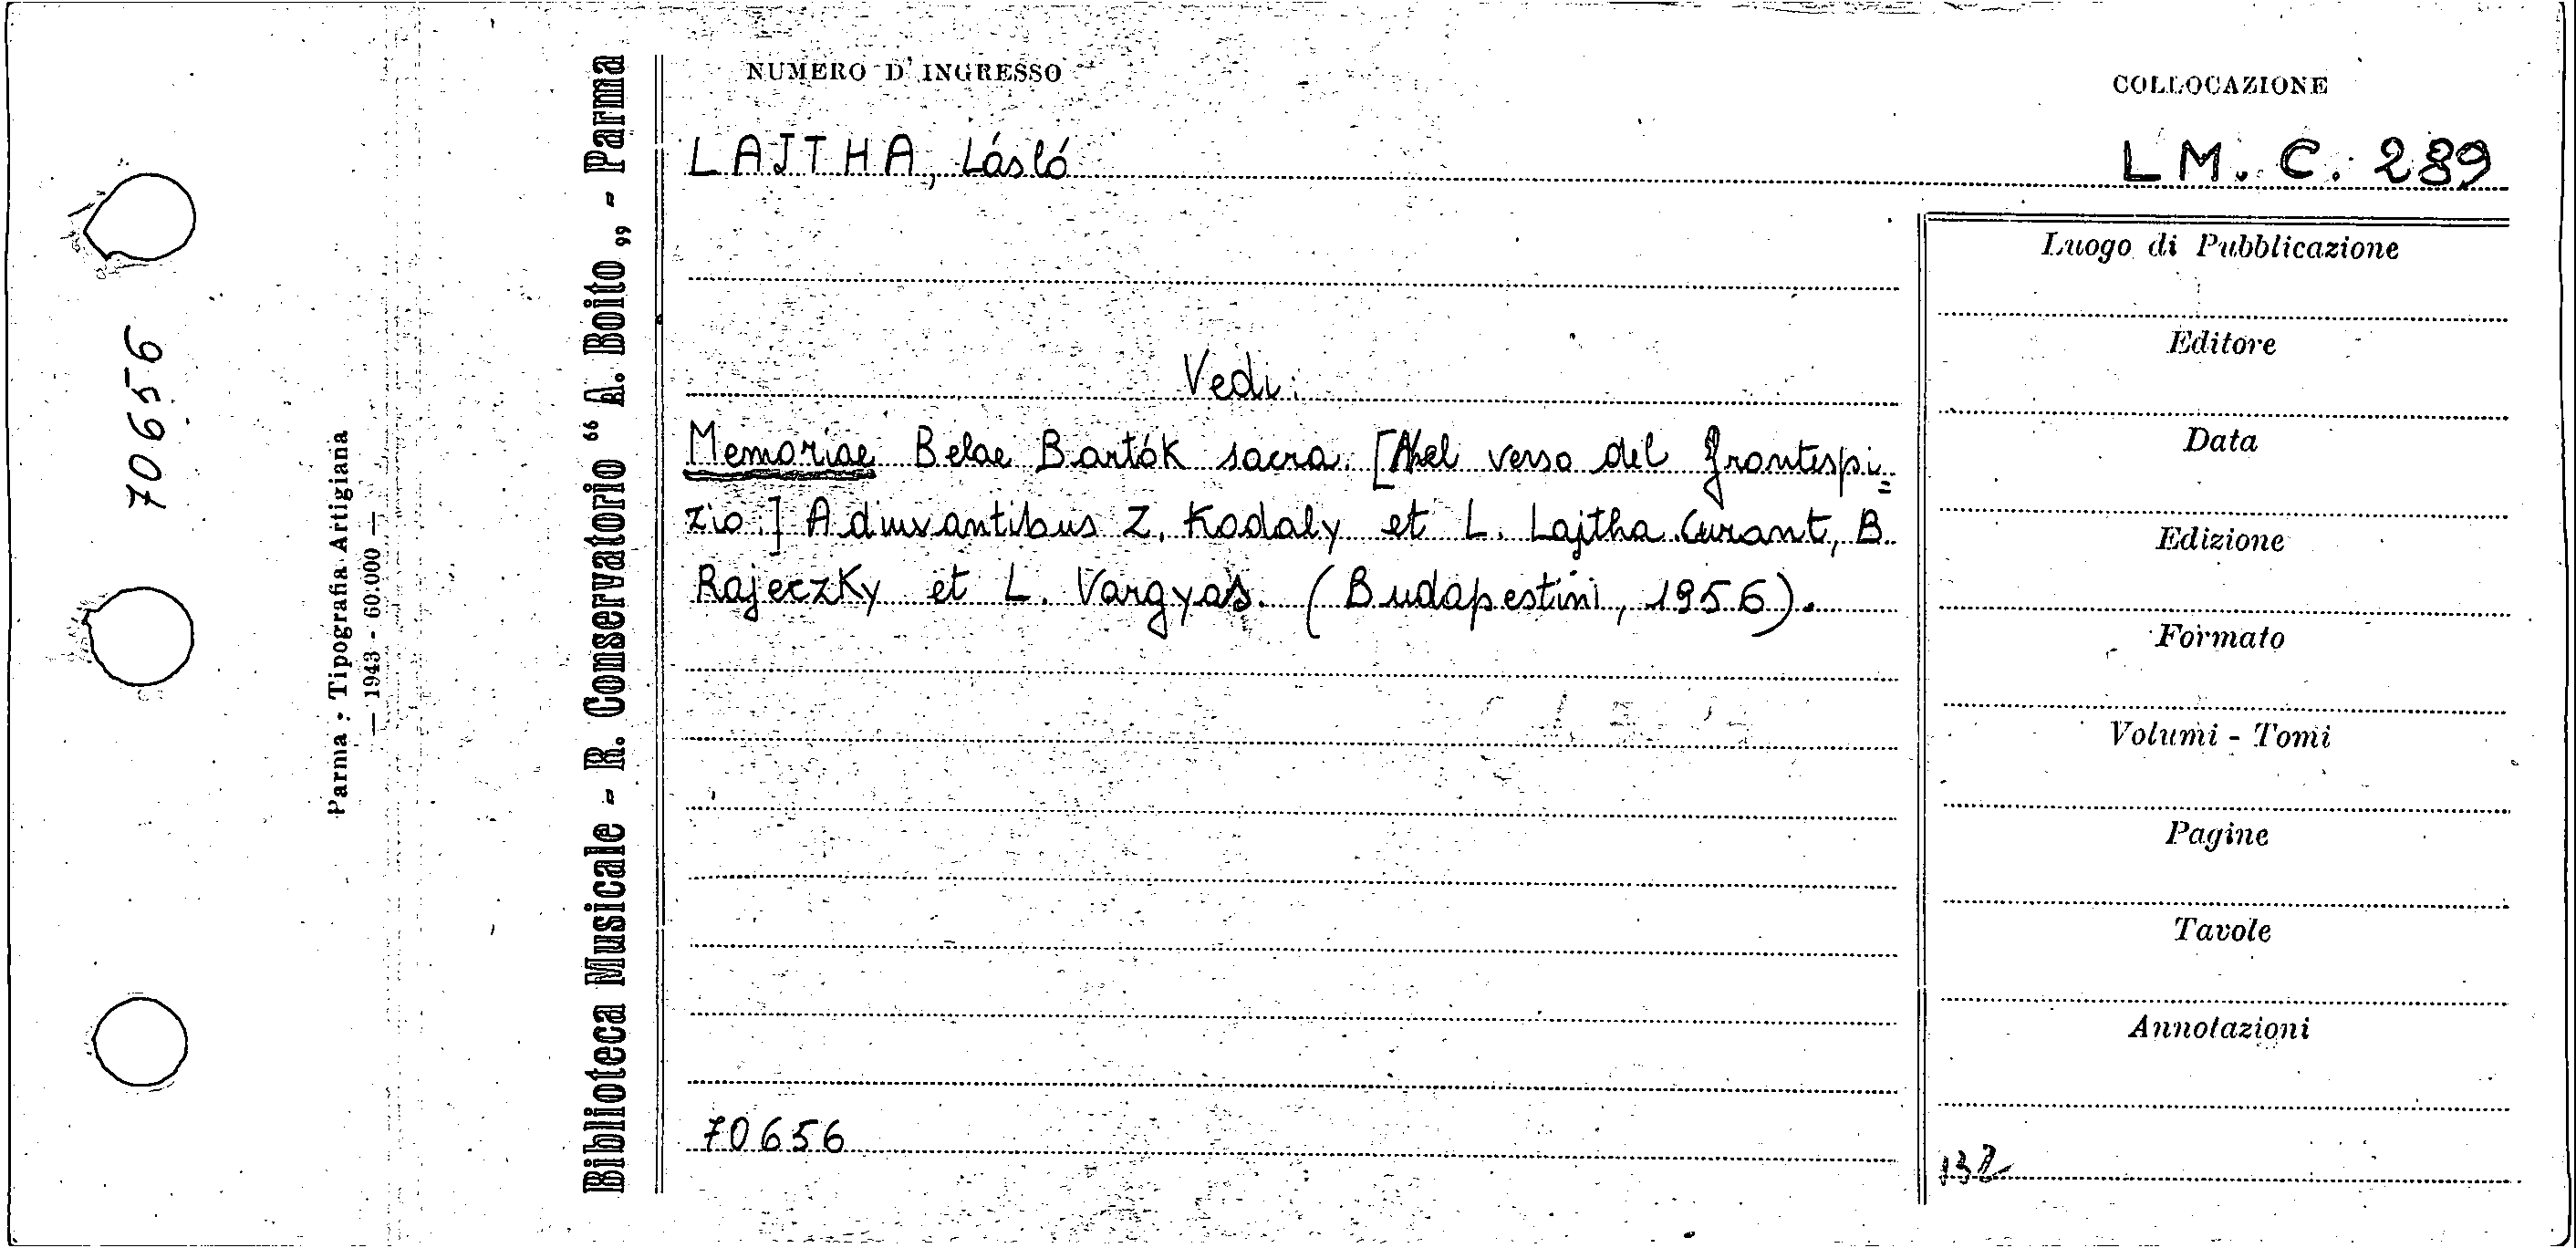 NUMERO D'INGRESSO
COLLOCAZIONE
LAJTHA, Lásló
LM. C. 289
Vedi:
Memoriae Belae Bartók sacra. [Nel verso del frontespi=
zio.] Adiuvantibus Z. Kodaly et L. Lajtha. Curant, B.
Rajeczky et L. Vargyas. (Budapestini, 1956).
70656
Luogo di Pubblicazione
Editore
Data
Edizione
Formato
Volumi - Tomi
Pagine
Tavole
Annotazioni
Biblioteca Musicale - R. Conservatorio “ A. Boito „ - Parma
Parma : Tipografia Artigiana
— 1943 - 60.000 —
70656